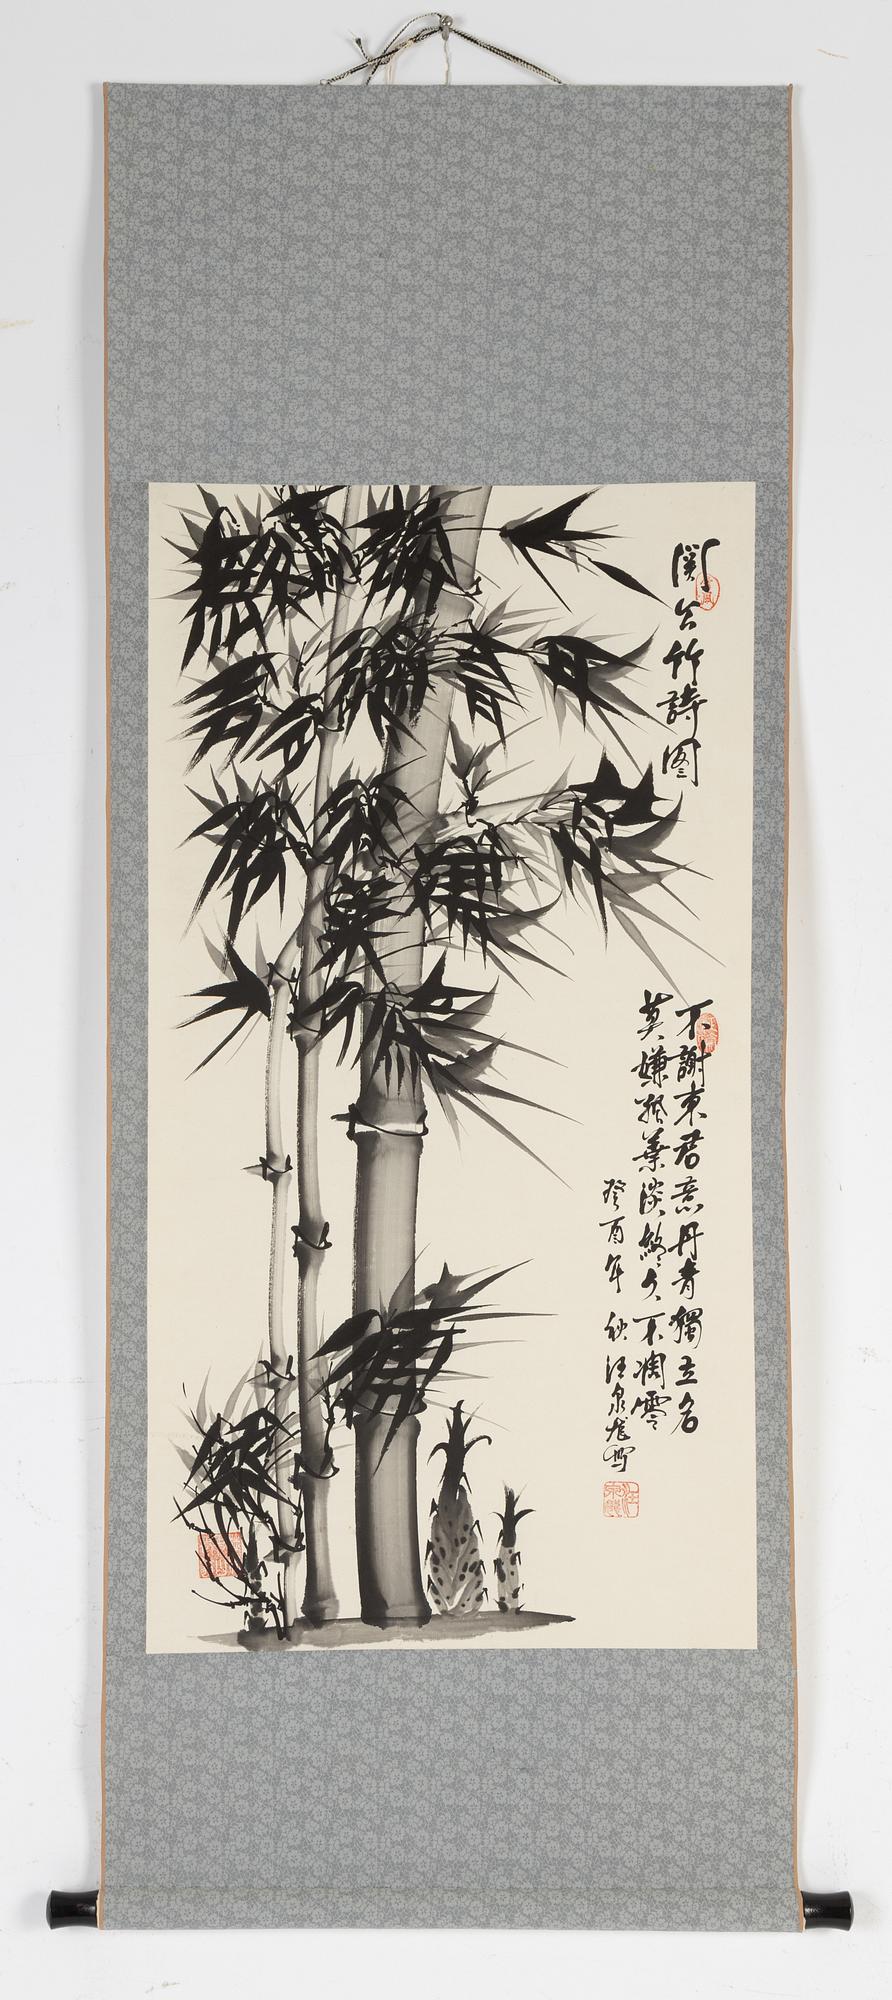 關公竹詩图
不謝東君意丹青獨立名
莫嫌孤葉淡終久不凋零
癸酉年秋汪泉龙写